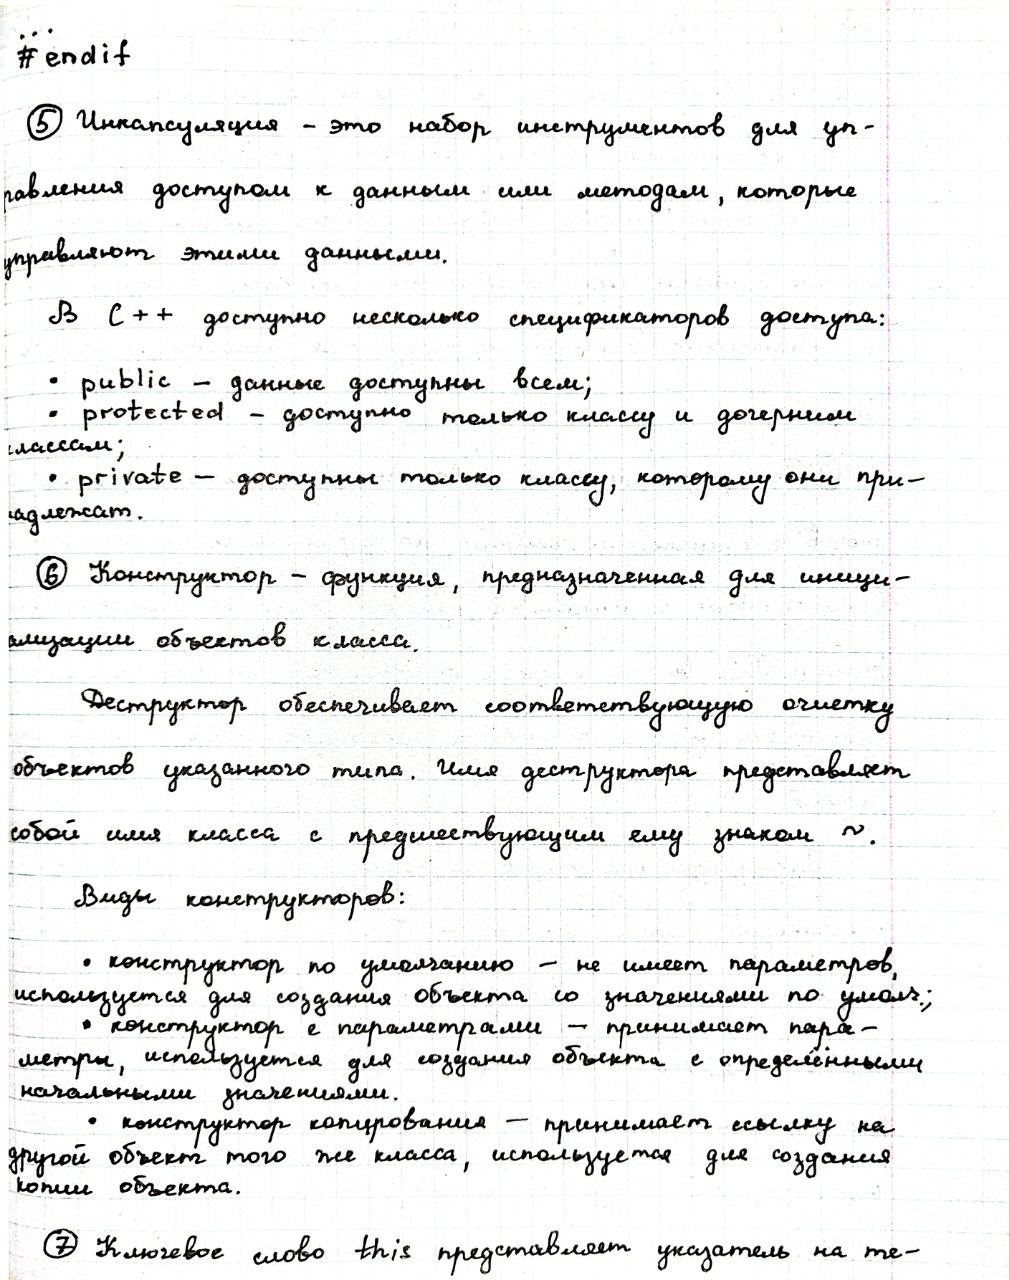 ...
#endif
⑤ Инкапсуляция - это набор инструментов для уп-
равления доступом к данным или методам, которые
управляют этими данными.
В C++ доступно несколько спецификаторов доступа:
• public - данные доступны всем;
• protected - доступно только классу и дочерним
классам;
• private - доступны только классу, которому они при-
надлежат.
⑥ Конструктор - функция, предназначенная для иници-
ализации объектов класса.
Деструктор обеспечивает соответствующую очистку
объектов указанного типа. Имя деструктора представляет
собой имя класса с предшествующим ему знаком ~.
Виды конструкторов:
• конструктор по умолчанию - не имеет параметров,
используется для создания объекта со значениями по умолч.;
• конструктор с параметрами - принимает пара-
метры, используется для создания объекта с определёнными
начальными значениями.
• конструктор копирования - принимает ссылку на
другой объект того же класса, используется для создания
копии объекта.
⑦ Ключевое слово this представляет указатель на те-